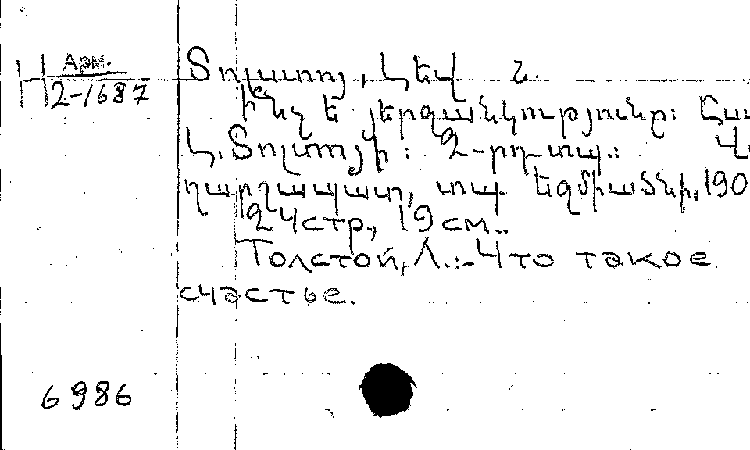 Арм.
Н 2-1687
Տոլստոյ, Լեվ Ն.
Ի՞նչ է յերջանկությունը: Ըստ
Լ. Տոլստոյի: 2-րդ տպ.: Վա
ղարշապատ, տպ. Էջմիածնի, 190
24 стр., 19 см..
Толстой, Л..:-Что такое
счастье.
6986